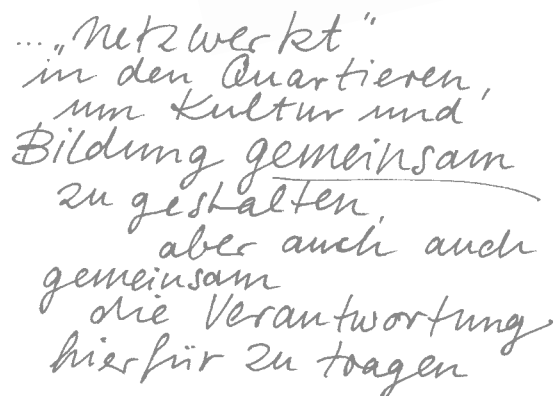 ... „netzwerkt“
in den Quartieren,
um Kultur und
Bildung gemeinsam
zu gestalten,
aber auch auch
gemeinsam
die Verantwortung
hierfür zu tragen